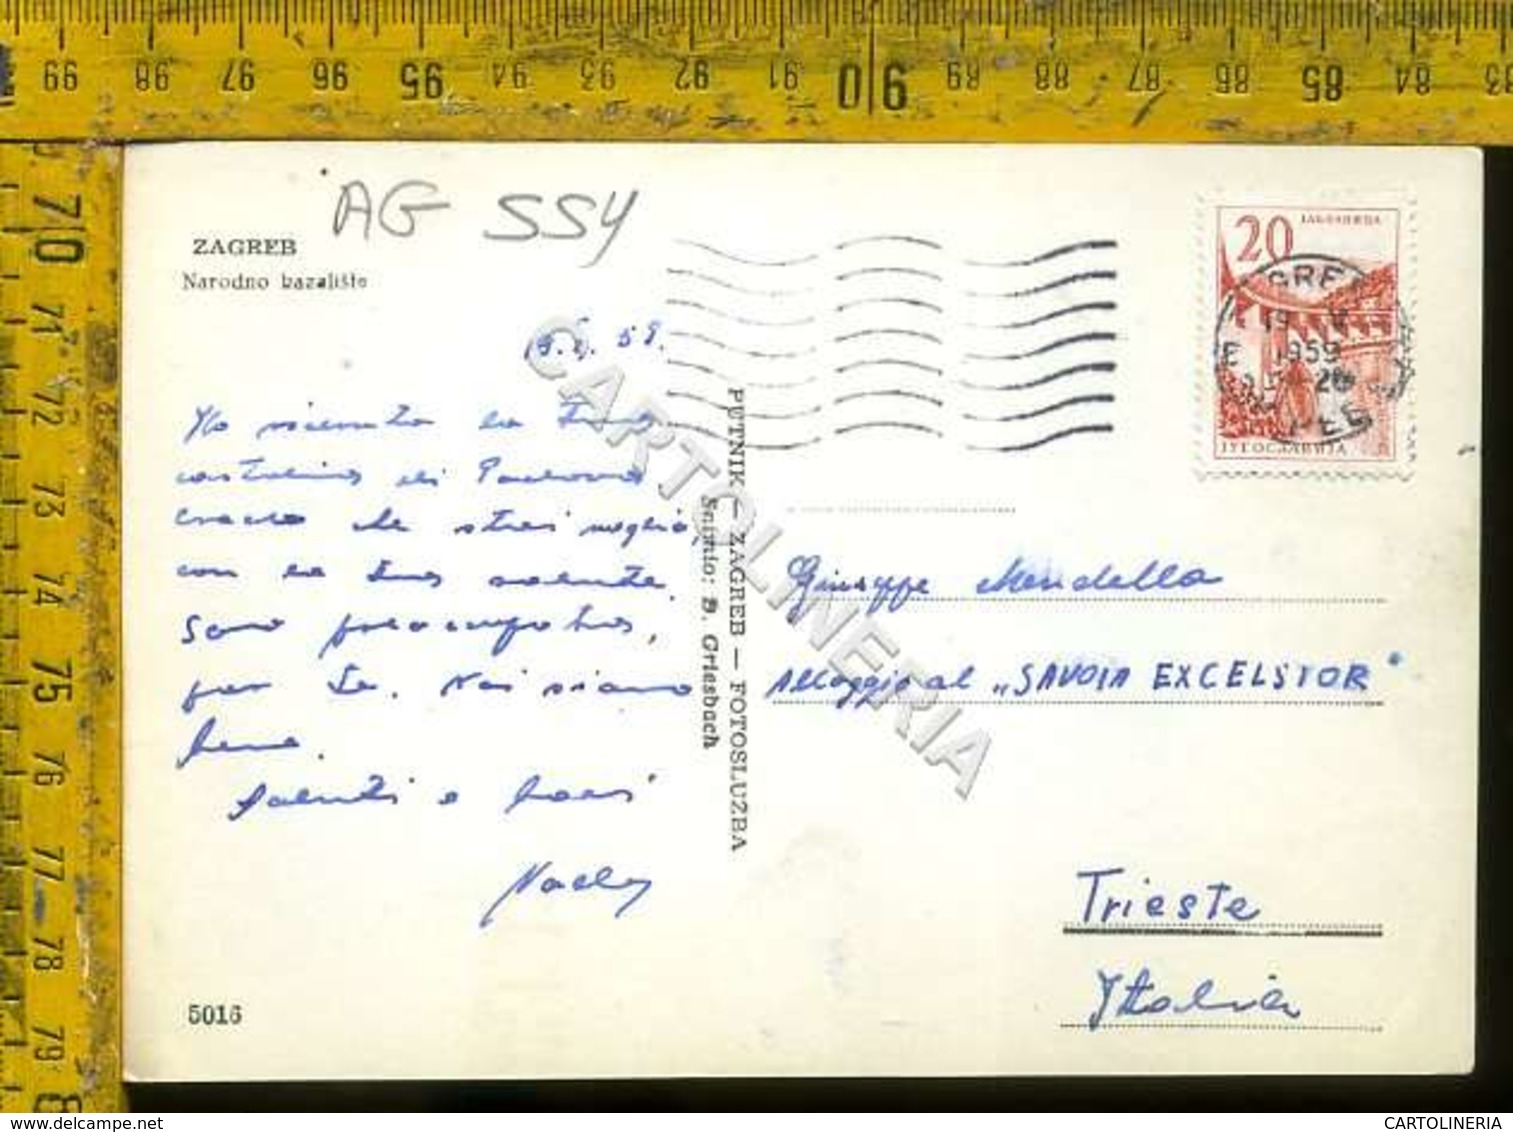 99 98 97 96 95 94 93 92 91 90 89 88 87 86 85 84 83
70 71 72 73 74 75 76 77 78 79 8
AG 554
ZAGREB
Narodno kazalište
20
ЈУГОСЛАВИЈА
1959
5.59.
Ho ricevuto la Tua
cartolina di Padova
credo che stai meglio,
con la tua salute.
Sono preoccupata,
per Te. Noi siamo
bene.
Saluti e baci
PUTNIK — ZAGREB — FOTOSLUŽBA
Snimio: D. Griesbach
Giuseppe Mendella
Alloggio al „SAVOIA EXCELSIOR"
Trieste
Italia
5016
CARTOLINERIA
CARTOLINERIA